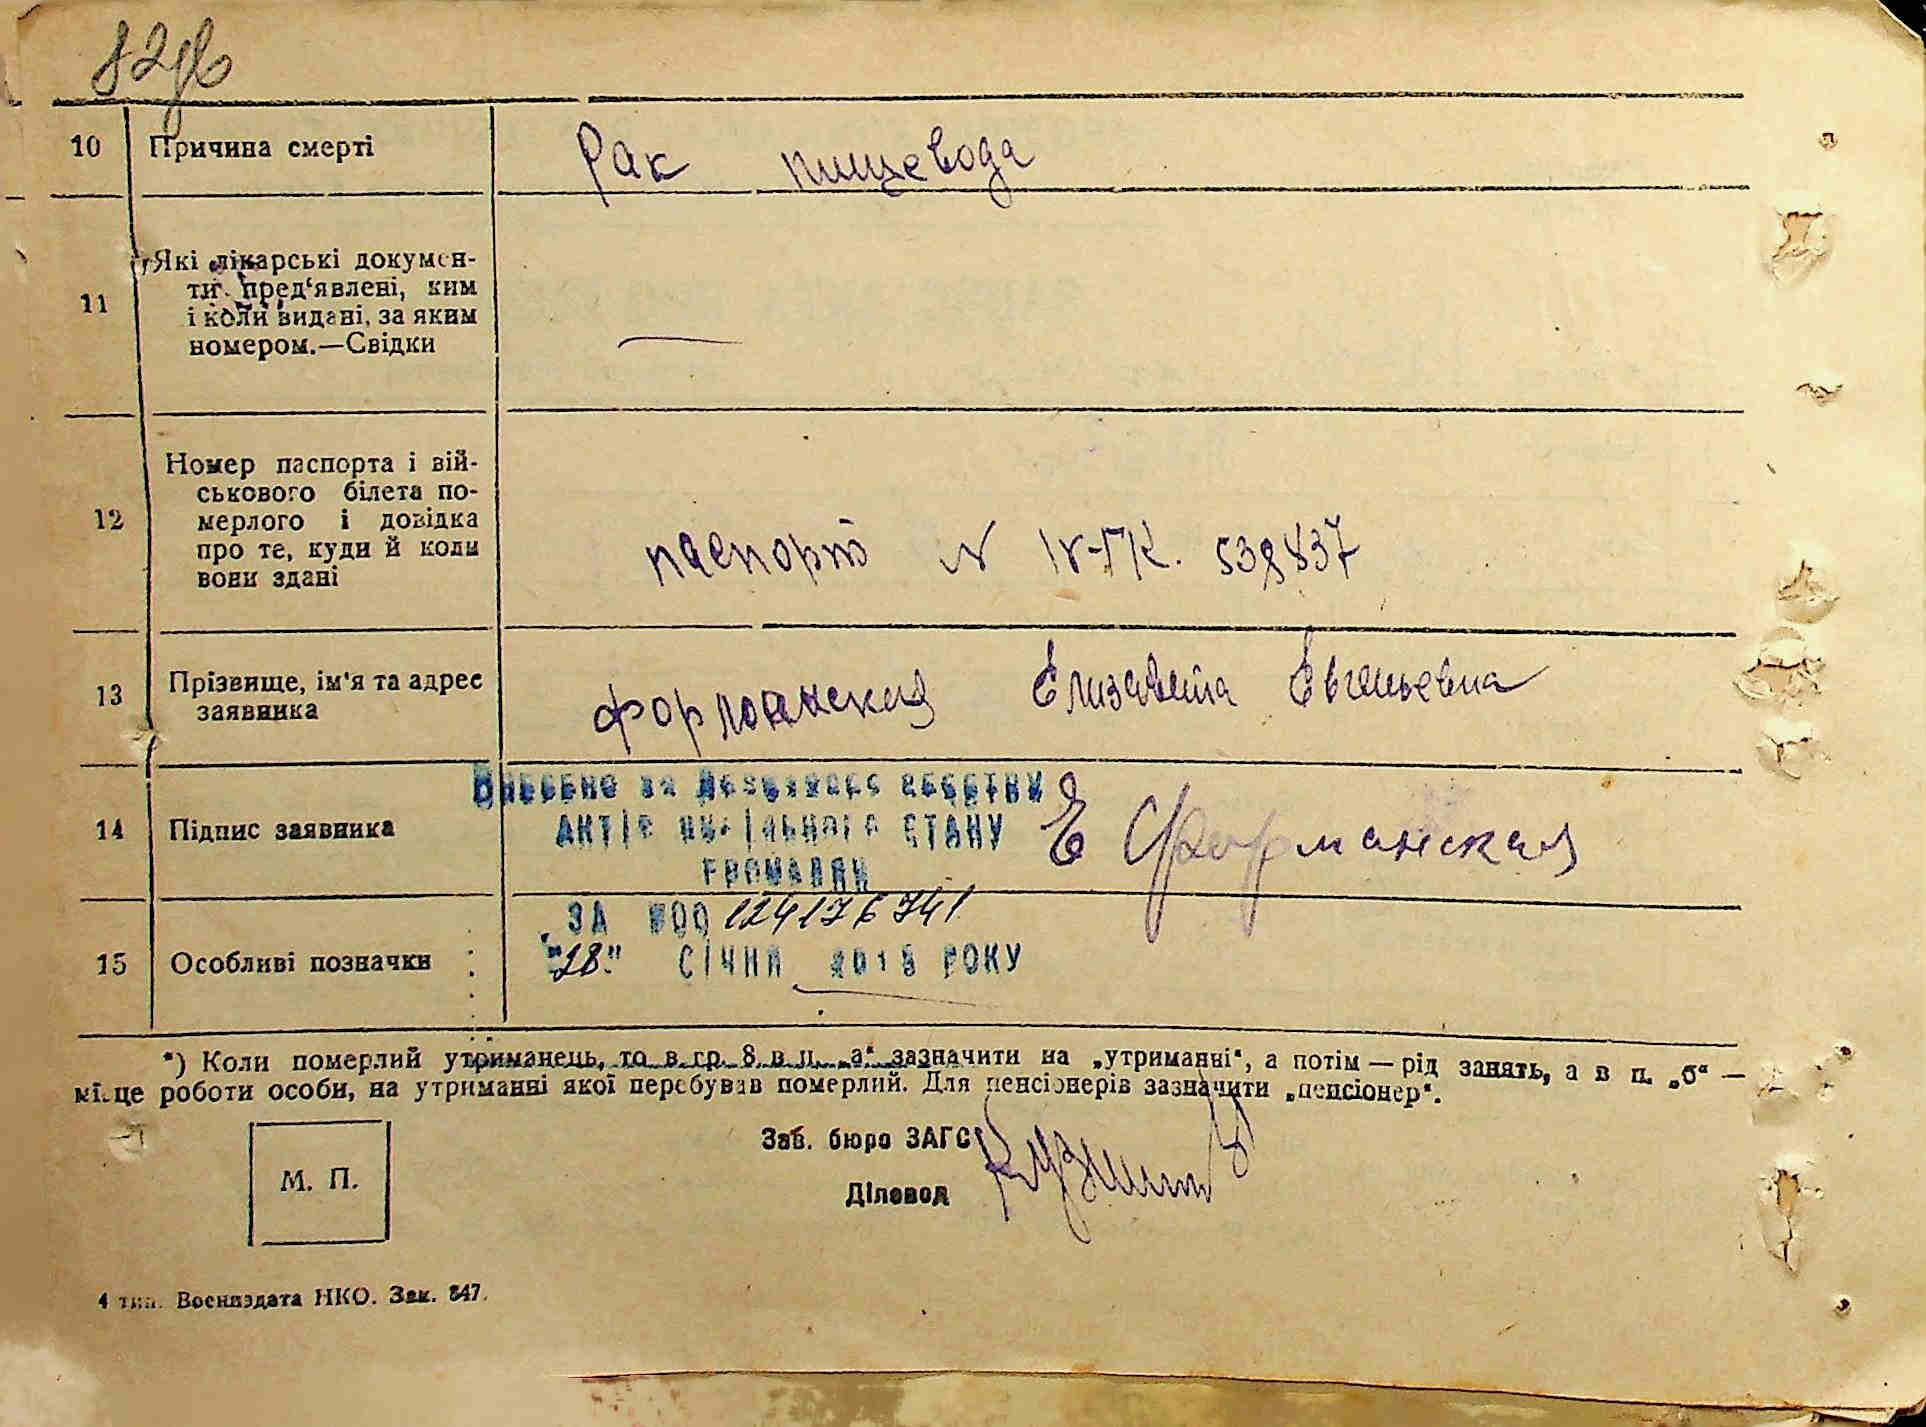 10 Причина смерті Рак пищевода
11 Які лікарські докумен-
ти пред‘явлені, ким
і коли видані, за яким
номером.—Свідки —
12 Номер паспорта і вій-
ськового білета по-
мерлого і довідка
про те, куди й коли
вони здані
паспорт N IV-ГК. 539837
13 Прізвище, ім'я та адрес
заявника
Форманская Елизавета Евгеньевна
Внесено до Державного реєстру
14 Підпис заявника актів цивільного стану Е Форманская
громадян
ЗА №00124176741
15 Особливі позначки "18" СІЧНЯ 2018 РОКУ
*) Коли померлий утриманець, то в гр. 8 в п. „а“ зазначити на „утриманні“, а потім — рід занять, а в п. „б“ —
місце роботи особи, на утриманні якої перебував померлий. Для пенсіонерів зазначити „пенсіонер“.
Зав. бюро ЗАГС
М. П.
Діловод
4 тип. Воениздата НКО. Зак. 847.